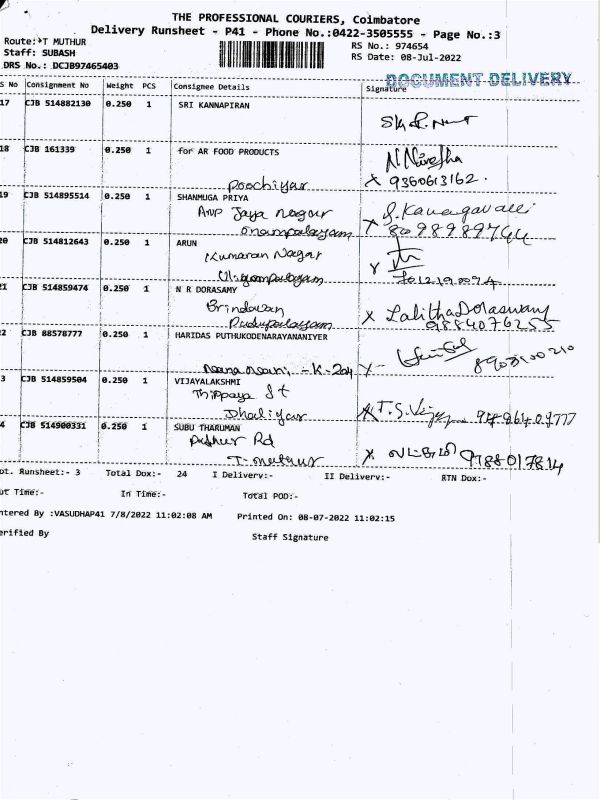 THE PROFESSIONAL COURIERS, Coimbatore
Delivery Runsheet - P41 - Phone No.:0422-3505555 - Page No.:3
Route:-T MUTHUR
Staff: SUBASH
DRS No.: DCJB97465403
RS No.: 974654
RS Date: 08-Jul-2022
DOCUMENT DELIVERY
S No Consignment No Weight PCS Consignee Details Signature
17 CJB 514882130 0.250 1 SRI KANNAPIRAN
18 CJB 161339 0.250 1 for AR FOOD PRODUCTS
N Niresha
Poochiyur x 9360613162.
19 CJB 514895514 0.250 1 SHANMUGA PRIYA
Anp Jaya Nagar S. Kanagavalli
onampalayam x 8098989744
20 CJB 514812643 0.250 1 ARUN
Kumaran Nagar
21 CJB 514859474 0.250 1 N R DORASAMY
Brindavan x Lalitha Doraswamy
Pudupalayam 9884076255
2 CJB 88578777 0.250 1 HARIDAS PUTHUKODENARAYANANIYER
K-204 x
3 CJB 514859504 0.250 1 VIJAYALAKSHMI
Thippaya St
Dhaliyur x T.S.
4 CJB 514900331 0.250 1 SUBU THARUMAN
Puthur Rd
T-muthur x 9788017814
ot. Runsheet:- 3 Total Dox:- 24 I Delivery:- II Delivery:- RTN Dox:-
ut Time:- In Time:- Total POD:-
ntered By :VASUDHAP41 7/8/2022 11:02:08 AM Printed On: 08-07-2022 11:02:15
erified By Staff Signature